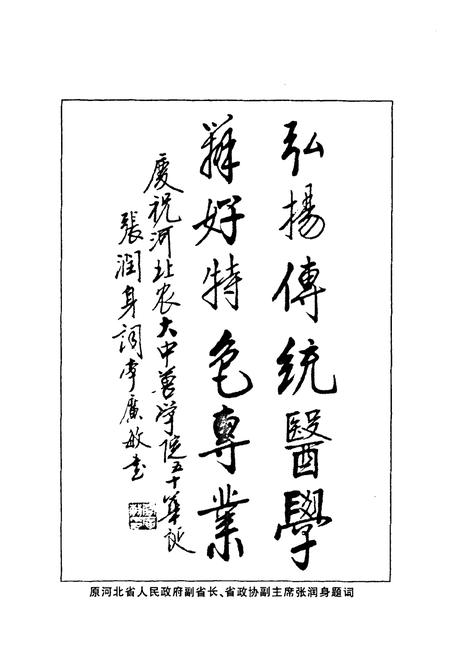 弘揚傳統醫學
辦好特色專業
慶祝河北农大中兽学院五十華诞
張润身詞李廣敏书
原河北省人民政府副省长、省政协副主席张润身题词